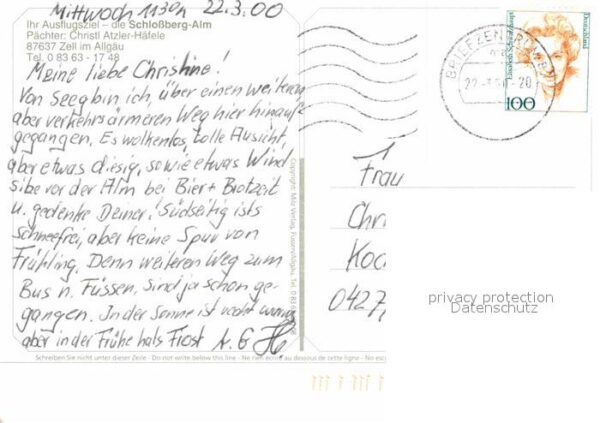 Mittwoch 11³⁰h 22.3.00
Ihr Ausflugsziel – die Schloßberg-Alm
Pächter: Christl Atzler-Häfele
87637 Zell im Allgäu
Tel. 0 83 63 - 17 48
Meine liebe Christine!
Von Seeg bin ich, über einen weiteren
aber verkehrsärmeren Weg hier hinauf
gegangen. Es wolkenlos, tolle Aussicht
aber etwas diesig, sowie etwas Wind
sitze vor der Alm bei Bier + Brotzeit
u. gedenke Deiner! Südseitig ists
schneefrei, aber keine Spur von
Frühling. Denn weiteren Weg zum
Bus n. Füssen, sind ja schon ge-
gangen. In der Sonne ist recht warm
aber in der Frühe hats Frost A. G
Schreiben Sie nicht unter dieser Zeile - Do not write below this line - Ne rien écrire au dessous de cette ligne - No esc
Copyright Milz Verlag, Füssen/Allgäu, Tel. 0 83 6
BRIEFZENTRUM
22.-3.00-20
Deutschland
100
Frau
Chr
Koc
0427
privacy protection
Datenschutz